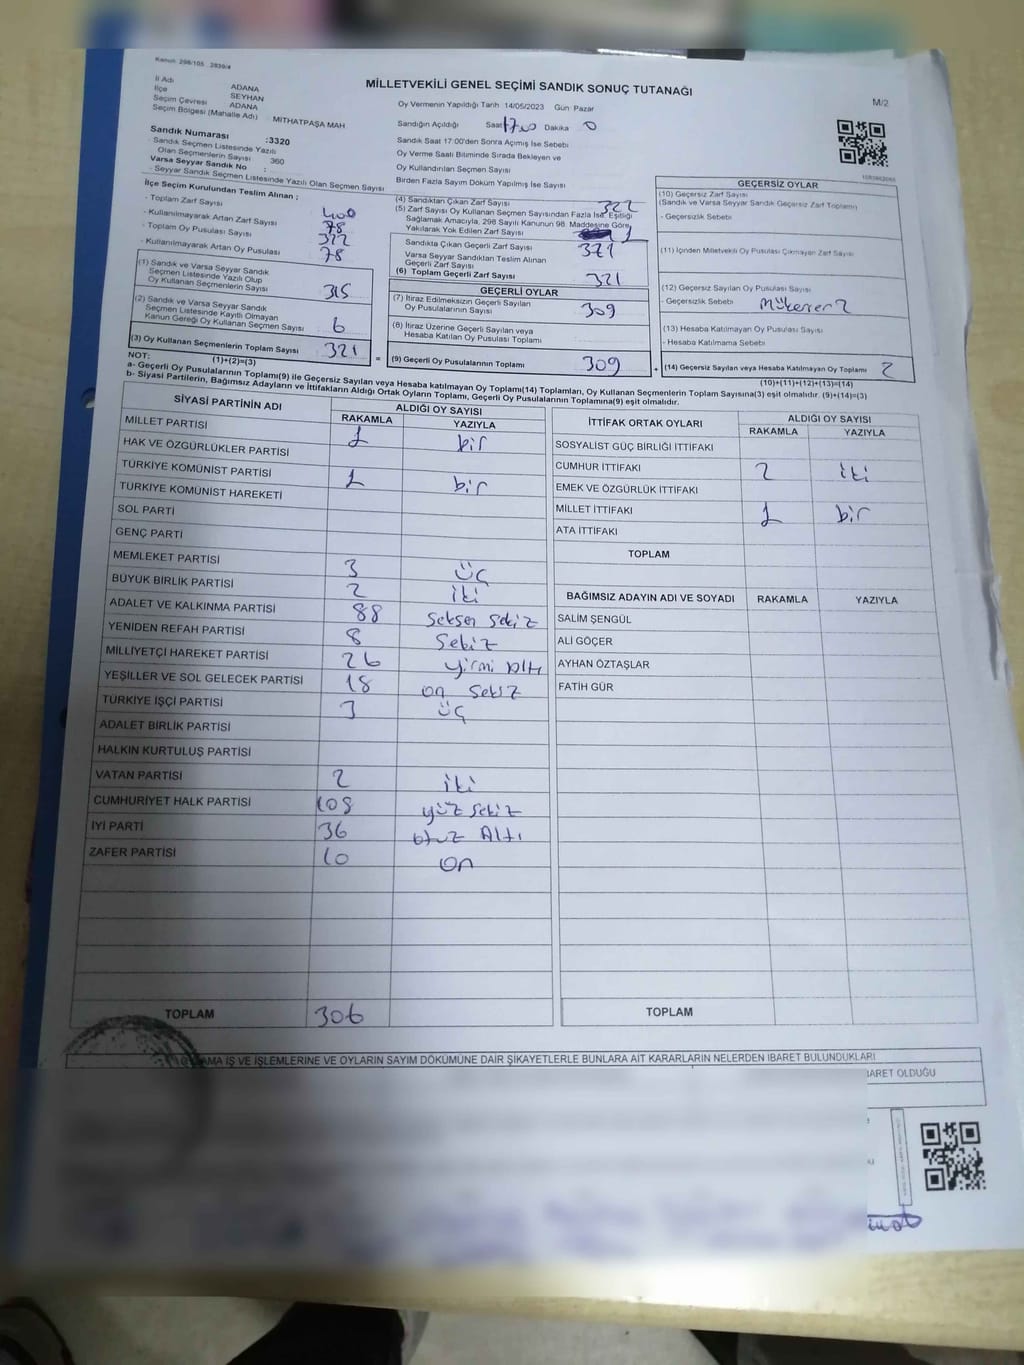 Kanun 298/105 2839/4
MİLLETVEKİLİ GENEL SEÇİMİ SANDIK SONUÇ TUTANAĞI
M/2
İl Adı ADANA
İlçe SEYHAN
Seçim Çevresi ADANA
Seçim Bölgesi (Mahalle Adı) : MİTHATPAŞA MAH
Sandık Numarası :3320
- Sandık Seçmen Listesinde Yazılı
Olan Seçmenlerin Sayısı 360
Varsa Seyyar Sandık No :
- Seyyar Sandık Seçmen Listesinde Yazılı Olan Seçmen Sayısı
Oy Vermenin Yapıldığı Tarih 14/05/2023 Gün: Pazar
Sandığın Açıldığı Saat 17.00 Dakika 0
Sandık Saat 17:00'den Sonra Açımış İse Sebebi
Oy Verme Saati Bitiminde Sırada Bekleyen ve
Oy Kullandırılan Seçmen Sayısı
Birden Fazla Sayım Döküm Yapılmış İse Sayısı
İlçe Seçim Kurulundan Teslim Alınan ;
- Toplam Zarf Sayısı 400
- Kullanılmayarak Artan Zarf Sayısı 78
- Toplam Oy Pusulası Sayısı
- Kullanılmayarak Artan Oy Pusulası 78
(1) Sandık ve Varsa Seyyar Sandık
Seçmen Listesinde Yazılı Olup
Oy Kullanan Seçmenlerin Sayısı 315
(2) Sandık ve Varsa Seyyar Sandık
Seçmen Listesinde Kayıtlı Olmayan
Kanun Gereği Oy Kullanan Seçmen Sayısı 6
(3) Oy Kullanan Seçmenlerin Toplam Sayısı 321
(1)+(2)=(3)
(4) Sandıktan Çıkan Zarf Sayısı 322
(5) Zarf Sayısı Oy Kullanan Seçmen Sayısından Fazla İse, Eşitliği
Sağlamak Amacıyla, 298 Sayılı Kanunun 98. Maddesine Göre
Yakılarak Yok Edilen Zarf Sayısı 1
Sandıkta Çıkan Geçerli Zarf Sayısı 321
Varsa Seyyar Sandıktan Teslim Alınan
Geçerli Zarf Sayısı
(6) Toplam Geçerli Zarf Sayısı 321
GEÇERLİ OYLAR
(7) İtiraz Edilmeksizin Geçerli Sayılan
Oy Pusulalarının Sayısı 309
(8) İtiraz Üzerine Geçerli Sayılan veya
Hesaba Katılan Oy Pusulası Toplamı
= (9) Geçerli Oy Pusulalarının Toplamı 309
GEÇERSİZ OYLAR
(10) Geçersiz Zarf Sayısı
(Sandık ve Varsa Seyyar Sandık Geçersiz Zarf Toplamı)
- Geçersizlik Sebebi
(11) İçinden Milletvekili Oy Pusulası Çıkmayan Zarf Sayısı
(12) Geçersiz Sayılan Oy Pusulası Sayısı
- Geçersizlik Sebebi Mükerrer 2
(13) Hesaba Katılmayan Oy Pusulası Sayısı
- Hesaba Katılmama Sebebi
+ (14) Geçersiz Sayılan veya Hesaba Katılmayan Oy Toplamı 2
(10)+(11)+(12)+(13)=(14)
NOT:
a- Geçerli Oy Pusulalarının Toplamı(9) ile Geçersiz Sayılan veya Hesaba katılmayan Oy Toplamı(14) Toplamları, Oy Kullanan Seçmenlerin Toplam Sayısına(3) eşit olmalıdır. (9)+(14)=(3)
b- Siyasi Partilerin, Bağımsız Adayların ve İttifakların Aldığı Ortak Oyların Toplamı, Geçerli Oy Pusulalarının Toplamına(9) eşit olmalıdır.
SİYASİ PARTİNİN ADI ALDIĞI OY SAYISI
RAKAMLA YAZIYLA
MİLLET PARTİSİ 1 bir
HAK VE ÖZGÜRLÜKLER PARTİSİ
TÜRKİYE KOMÜNİST PARTİSİ 1 bir
TÜRKİYE KOMÜNİST HAREKETİ
SOL PARTİ
GENÇ PARTİ
MEMLEKET PARTİSİ 3 üç
BÜYÜK BİRLİK PARTİSİ 2 iki
ADALET VE KALKINMA PARTİSİ 88 seksen sekiz
YENİDEN REFAH PARTİSİ 8 sekiz
MİLLİYETÇİ HAREKET PARTİSİ 26 yirmi Altı
YEŞİLLER VE SOL GELECEK PARTİSİ 18 on sekiz
TÜRKİYE İŞÇİ PARTİSİ 3 üç
ADALET BİRLİK PARTİSİ
HALKIN KURTULUŞ PARTİSİ
VATAN PARTİSİ 2 iki
CUMHURİYET HALK PARTİSİ 108 yüz sekiz
İYİ PARTİ 36 otuz Altı
ZAFER PARTİSİ 10 on
TOPLAM 306
İTTİFAK ORTAK OYLARI ALDIĞI OY SAYISI
RAKAMLA YAZIYLA
SOSYALİST GÜÇ BİRLİĞİ İTTİFAKI
CUMHUR İTTİFAKI 2 iki
EMEK VE ÖZGÜRLÜK İTTİFAKI
MİLLET İTTİFAKI 1 bir
ATA İTTİFAKI
TOPLAM
BAĞIMSIZ ADAYIN ADI VE SOYADI RAKAMLA YAZIYLA
SALİM ŞENGÜL
ALİ GÖÇER
AYHAN ÖZTAŞLAR
FATİH GÜR
TOPLAM
AMA İŞ VE İŞLEMLERİNE VE OYLARIN SAYIM DÖKÜMÜNE DAİR ŞİKAYETLERLE BUNLARA AİT KARARLARIN NELERDEN İBARET BULUNDUKLARI
BARET OLDUĞU